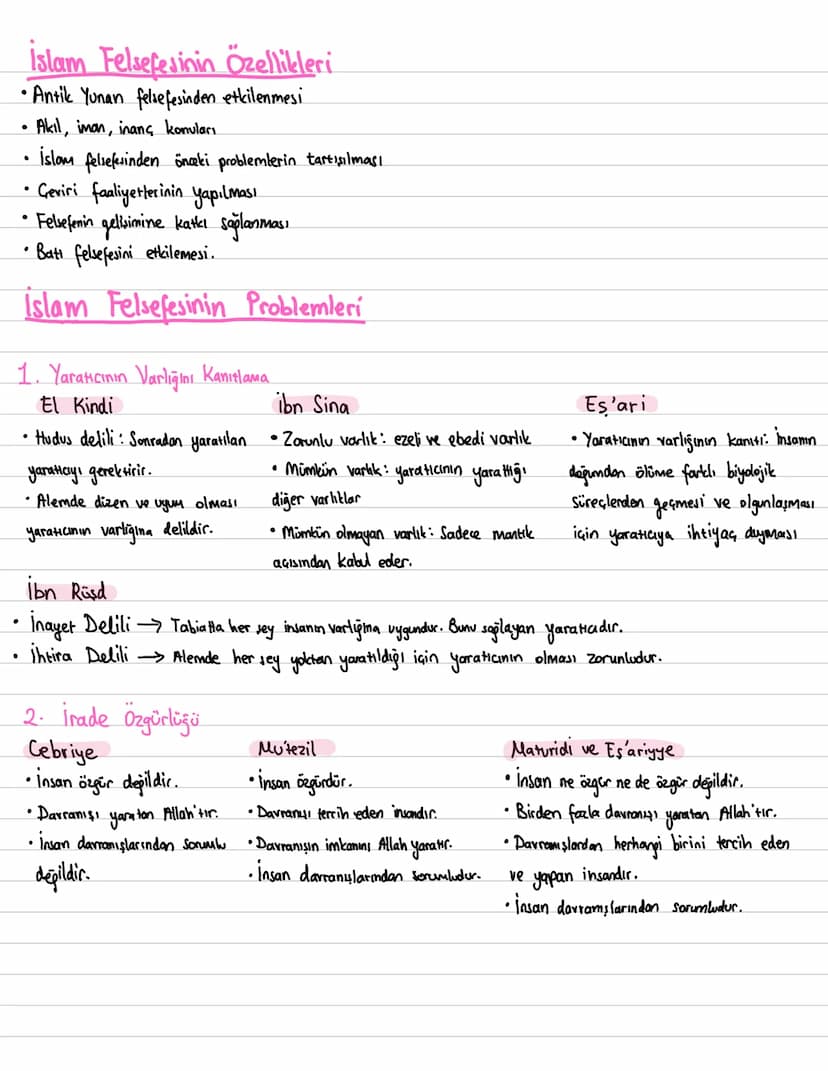 İslam Felsefesinin Özellikleri
• Antik Yunan felsefesinden etkilenmesi
• Akıl, iman, inanç konuları
• İslam felsefesinden önceki problemlerin tartışılması
• Çeviri faaliyetlerinin yapılması
• Felsefenin gelişimine katkı sağlanması
• Batı felsefesini etkilemesi.
İslam Felsefesinin Problemleri
1. Yaratıcının Varlığını Kanıtlama
El Kindi
• Hudus delili: Sonradan yaratılan
yaratıcıyı gerektirir.
• Alemde düzen ve uyum olması
yaratıcının varlığına delildir.
İbn Sina
• Zorunlu varlık: ezeli ve ebedi varlık
• Mümkün varlık: yaratıcının yarattığı
diğer varlıklar
• Mümkün olmayan varlık: Sadece mantık
açısından kabul eder.
Eş'ari
• Yaratıcının varlığının kanıtı: İnsanın
doğumdan ölüme farklı biyolojik
süreçlerden geçmesi ve olgunlaşması
için yaratıcıya ihtiyaç duyması
İbn Rüşd
• İnayet Delili → Tabiatta her şey insanın varlığına uygundur. Bunu sağlayan yaratıcıdır.
• İhtira Delili → Alemde her şey yoktan yaratıldığı için yaratıcının olması zorunludur.
2. İrade Özgürlüğü
Cebriye
• İnsan özgür değildir.
• Davranışı yaratan Allah'tır.
• İnsan davranışlarından sorumlu
değildir.
Mu'tezil
• İnsan özgürdür.
• Davranışı tercih eden insandır.
• Davranışın imkanını Allah yaratır.
• İnsan davranışlarından sorumludur.
Maturidi ve Eş'ariyye
• İnsan ne özgür ne de özgür değildir.
• Birden fazla davranışı yaratan Allah'tır.
• Davranışlardan herhangi birini tercih eden
ve yapan insandır.
• İnsan davranışlarından sorumludur.